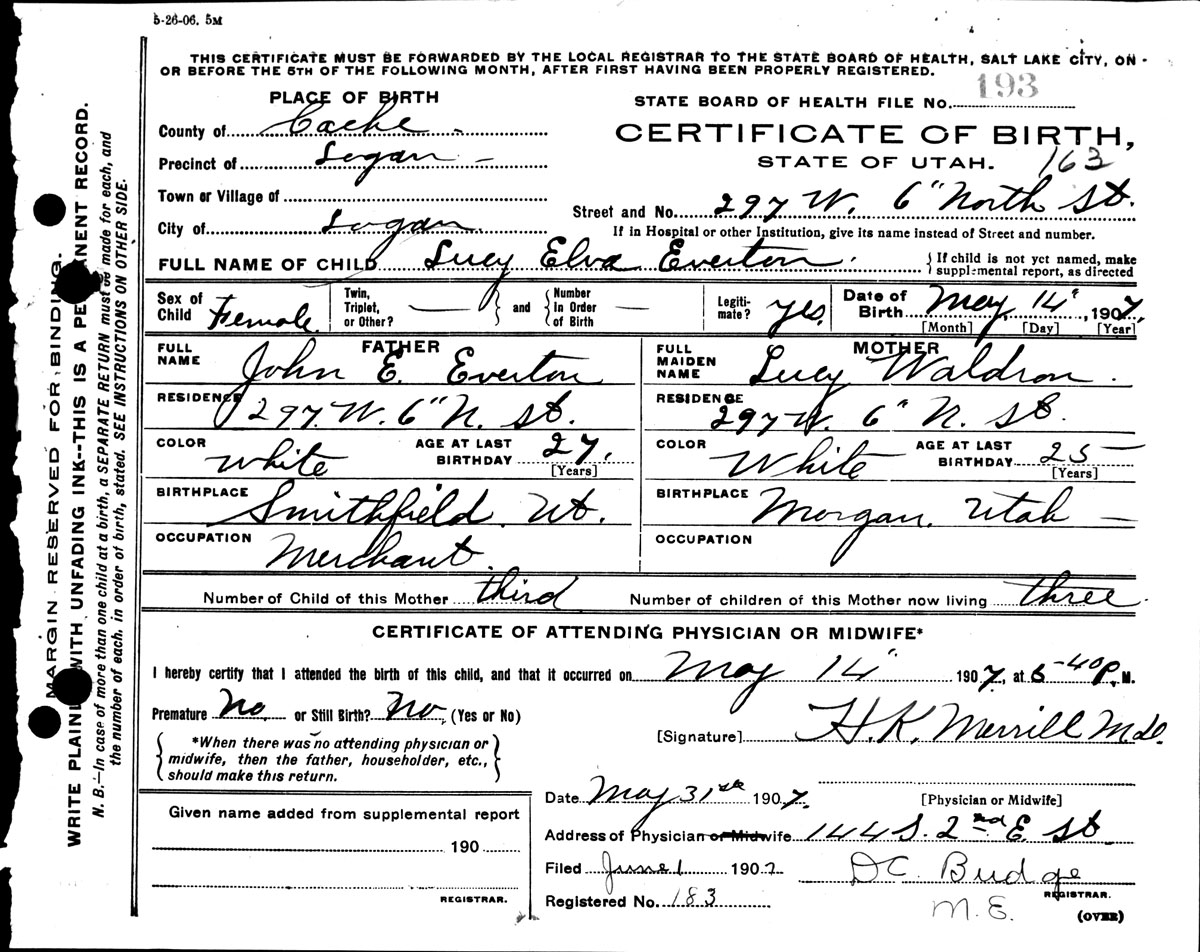 5-26-06. 5M
THIS CERTIFICATE MUST BE FORWARDED BY THE LOCAL REGISTRAR TO THE STATE BOARD OF HEALTH, SALT LAKE CITY, ON
OR BEFORE THE 5TH OF THE FOLLOWING MONTH, AFTER FIRST HAVING BEEN PROPERLY REGISTERED.
PLACE OF BIRTH
County of Cache
Precinct of Logan
Town or Village of
City of Logan
STATE BOARD OF HEALTH FILE No. 193
CERTIFICATE OF BIRTH,
STATE OF UTAH. 163
Street and No. 297 W. 6" North St.
If in Hospital or other Institution, give its name instead of Street and number.
FULL NAME OF CHILD Lucy Elva Everton
If child is not yet named, make
supplemental report, as directed
Sex of Child Female
Twin, Triplet, or Other? —
and
Number In Order of Birth —
Legitimate? yes.
Date of Birth May 14", 1907.
[Month] [Day] [Year]
FATHER
FULL NAME John E. Everton
RESIDENCE 297 W. 6" N. St.
COLOR White
AGE AT LAST BIRTHDAY 27.
[Years]
BIRTHPLACE Smithfield Ut.
OCCUPATION Merchant.
MOTHER
FULL MAIDEN NAME Lucy Waldron.
RESIDENCE 297 W. 6" N. St.
COLOR White
AGE AT LAST BIRTHDAY 25
[Years]
BIRTHPLACE Morgan, Utah
OCCUPATION
Number of Child of this Mother third
Number of children of this Mother now living three.
CERTIFICATE OF ATTENDING PHYSICIAN OR MIDWIFE*
I hereby certify that I attended the birth of this child, and that it occurred on May 14" 1907, at 5-40 P. M.
Premature No or Still Birth? No, (Yes or No)
*When there was no attending physician or
midwife, then the father, householder, etc.,
should make this return.
[Signature] H. K. Merrill M.D.
[Physician or Midwife]
Given name added from supplemental report
190
REGISTRAR.
Date May 31st 1907.
Address of Physician or Midwife 144 S. 2nd E. St
Filed June 1 1907
Registered No. 183
D C. Budge
REGISTRAR.
M. E.
(OVER)
MARGIN RESERVED FOR BINDING.
WRITE PLAINL WITH UNFADING INK--THIS IS A PE NENT RECORD.
N. B.—In case of more than one child at a birth, a SEPARATE RETURN must be made for each, and
the number of each, in order of birth, stated. SEE INSTRUCTIONS ON OTHER SIDE.